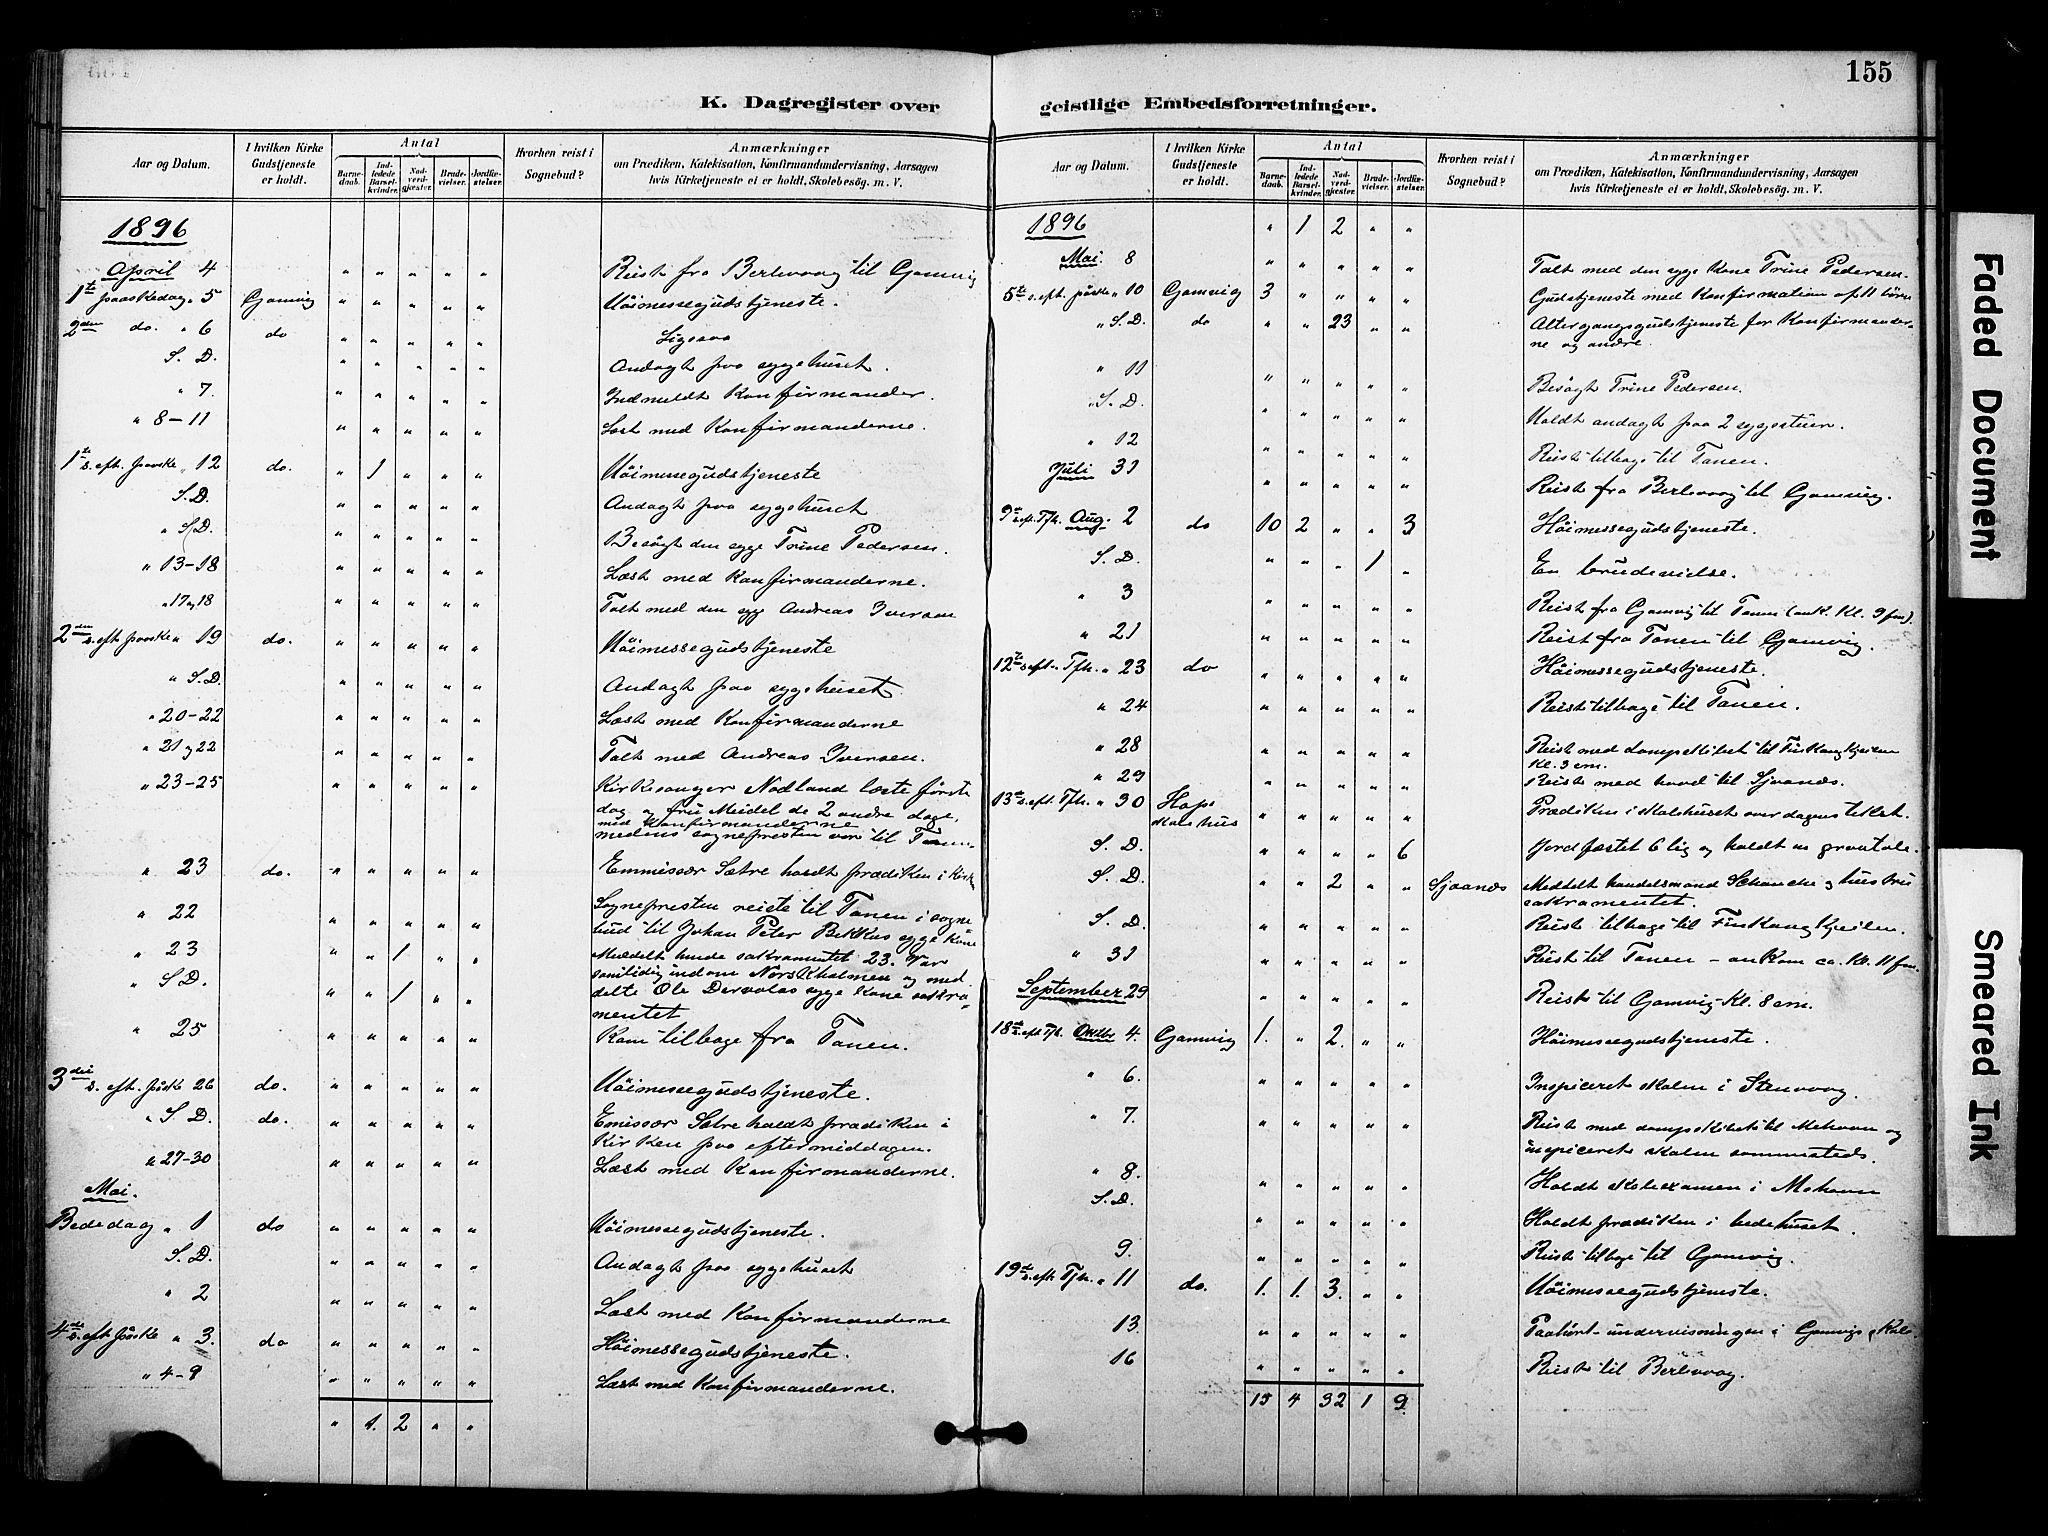 155
K. Dagregister over
geistlige Embedsforretninger.
Aar og Datum.
I hvilken Kirke Gudstjeneste er holdt.
Antal
Barne-daab.
Ind-ledede Barsel-kvinder.
Nad-verd-gjæster.
Brude-vielser.
Jordfæ-stelser.
Hvorhen reist i Sognebud?
Anmærkninger
om Prædiken, Katekisation, Konfirmandundervisning, Aarsagen
hvis Kirketjeneste ei er holdt, Skolebesøg. m. V.
1896
April 4 " " " " " Reist fra Berlevaag til Gamvig
1te paaskedag " 5 Gamvig " " " " " Höimessegudstjeneste.
2den do. " 6 do " " " " " Ligesaa
S. D. " " " " " Andagt paa sygehuset.
" 7. " " " " " Indmeldt Konfirmander.
" 8-11 " " " " " Læst med Konfirmanderne.
1te s. eft. paaske " 12 do. " 1 " " " Höimessegudstjeneste
S. D. " " " " " Andagt paa sygehuset
" S. D. " " " " " Besögt den syge Trine Pedersen.
" 13-18 " " " " " Læst med Konfirmanderne.
" 17 og 18 " " " " " Talt med den syge Andreas Iversen
2den s. eft paaske " 19 do. " " " " " Höimessegudstjeneste
" S. D. " " " " " Andagt paa sygehuset.
" 20-22 " " " " " Læst med Konfirmanderne
" 21 og 22 " " " " " Talt med Andreas Iversen.
" 23-25 " " " " " Kirkesanger Nodland læste förste
dag og fru Meidel de 2 andre dage,
med Konfirmanderne
medens sognepresten var til Tanen.
" 23 do. " " " " " Emmissær Sætre holdt prædiken i Kirken
" 22 " " " " " Sognepresten reiste til Tanen i sogne
bud til Johan Peter Bekkas syge Kone
" 23 " " 1 " " Meddelt hende sakramentet 23. Var
samtidig indom Norskholmen og med
" S. D. " " 1 " " delte Ole Dervolas syge Kone sakra-
mentet
" 25 " " " " " Kom tilbage fra Tanen.
3die s. eft. påske 26 do. " " " " " Höimessegudstjeneste.
" S. D. do. " " " " " Emissær Sætre holdt prædiken i
Kirken paa eftermiddagen.
" 27-30 " " " " " Læst med Konfirmanderne.
Mai.
Bededag " 1 do " " " " " Höimessegudstjeneste.
S. D. " " " " " Andagt paa sygehuset
" 2 " " " " " Læst med Konfirmanderne
4de s. eft påske " 3. do " " " " " Höimessegudstjeneste.
" 4-9 " " " " " Læst med Konfirmanderne.
" 1. 2 " "
Aar og Datum.
I hvilken Kirke Gudstjeneste er holdt.
Antal
Barne-daab.
Ind-ledede Barsel-kvinder.
Nad-verd-gjæster.
Brude-vielser.
Jordfæ-stelser.
Hvorhen reist i Sognebud?
Anmærkninger
om Prædiken, Katekisation, Konfirmandundervisning, Aarsagen
hvis Kirketjeneste ei er holdt, Skolebesøg. m. V.
1896 " 1 2 " "
Mai. 8 " " " " " Talt med den syge Kone Trine Pedersen.
5te s. eft. påske " 10 Gamvig 3 " " " " Gudstjeneste med Konfirmation af 11 börn
" S. D. do " " 23 " " Altergangsgudstjeneste for Konfirmander-
ne og andre.
" 11 " " " " " Besögt Trine Pedersen.
" S. D. " " " " " Holdt andagt paa 2 sygestuer.
" 12 " " " " " Reist tilbage til Tanen.
Juli 31 " " " " " Reist fra Berlevaag til Gamvig.
9de s. eft. Tfh. Aug. 2 do 10 2 " " 3 Höimessegudstjeneste.
S. D. " " " 1 " En brudevielse.
" 3 " " " " " Reist fra Gamvig til Tanen (ank. Kl. 9 fm).
" 21 " " " " " Reist fra Tanen til Gamvig.
12te s. eft. Tfh. " 23 do " " " " " Höimessegudstjeneste.
" 24 " " " " " Reist tilbage til Tanen.
" 28 " " " " " Reist med dampskibet til Finkongkjeilen
Kl. 3 em.
" 29 " " " " " Reist med baad til Sjaanæs.
13de s. eft. Tfh. " 30 Hops skolehus " " " " " Prædiken i skolehuset over dagens tekst.
S. D. " " " " 6 Jordfæstet 6 lig og holdt en gravtale.
S. D. " " 2 " " Sjaanæs Meddelt handelsmand Schanche og hustru
sakramentet.
S. D. " " " " " Reist tilbage til Finkongkjeilen.
" 31 " " " " " Reist til Tanen - ankom ca. Kl. 11 fm.
September 29 " " " " " Reist til Gamvig Kl. 8 em.
18de s. eft Tfh. Oktbr 4. Gamvig 1. " 2. " " Höimessegudstjeneste.
" 6. " " " " " Inspiceret skolen i Stenvaag.
" 7. " " " " " Reist med dampskibet til Mehavn og
inspiceret skolen sammesteds.
" 8. " " " " " Holdt skoleexamen i Mehavn
S. D. " " " " " Holdt prædiken i bedehuset.
9. " " " " " Reist tilbage til Gamvig.
19de s. eft. Tfh. " 11 do. 1. 1. 3. " " Höimessegudstjeneste.
13. " " " " " Paahört undervisningen i Gamvigs skole.
16 " " " " " Reist til Berlevaag.
15 4 32 1 9.
Faded Document
Smeared Ink